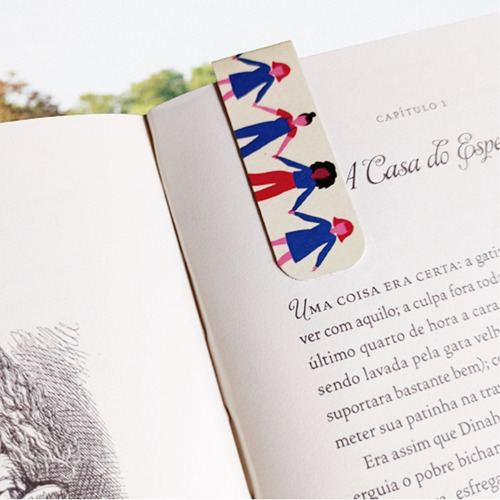 CAPÍTULO 1
A Casa do
UMA COISA ERA CERTA: a
ver com aquilo; a culpa fora
último quarto de hora a
sendo lavada pela gata
suportara bastante bem);
meter sua patinha na
Era assim que
erguia o pobre